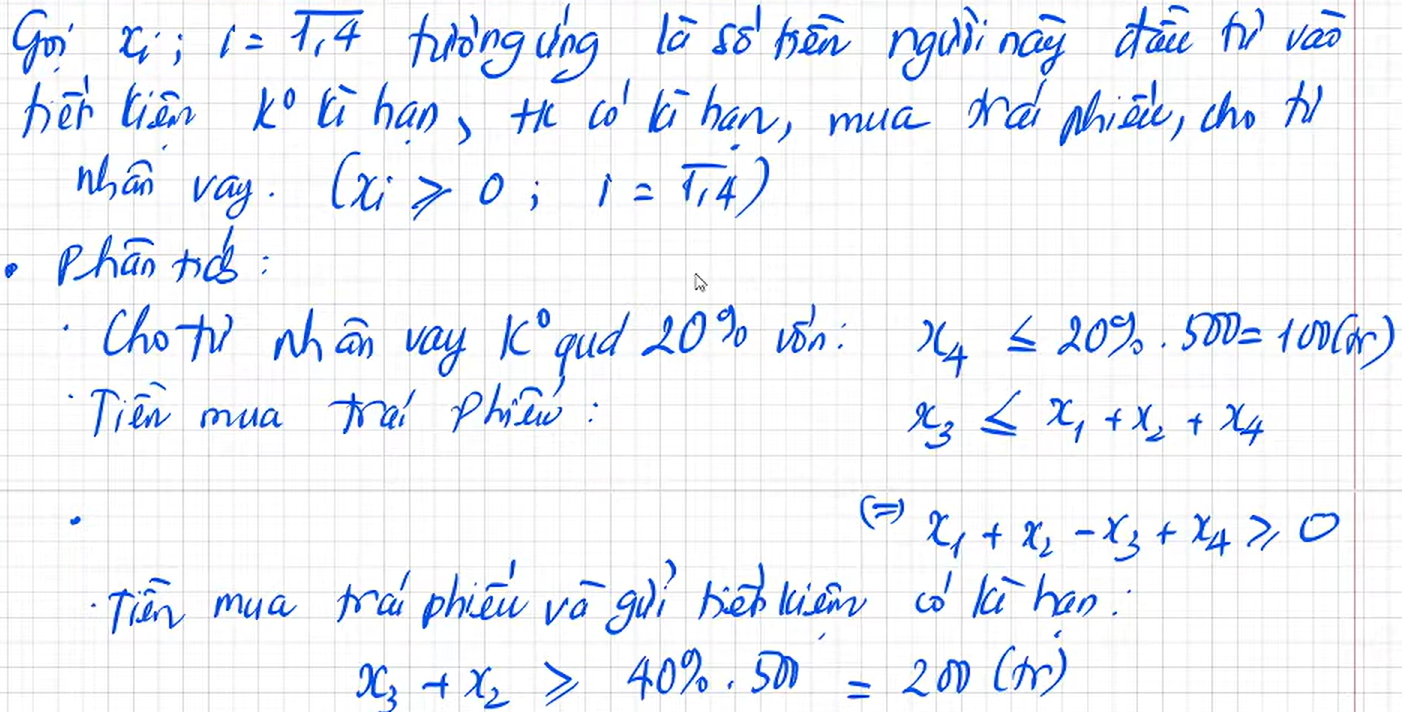 Gọi xᵢ; i = 1,4 tương ứng là số tiền người này đầu tư vào
tiết kiệm k° kì hạn, tk có kì hạn, mua trái phiếu, cho tư
nhân vay. (xᵢ ≥ 0; i = 1,4)
• Phân tích:
· Cho tư nhân vay k° quá 20% vốn: x₄ ≤ 20%.500 = 100(tr)
· Tiền mua trái phiếu: x₃ ≤ x₁ + x₂ + x₄
(=) x₁ + x₂ - x₃ + x₄ ≥ 0
· Tiền mua trái phiếu và gửi tiết kiệm có kì hạn:
x₃ + x₂ ≥ 40%.500 = 200 (tr)